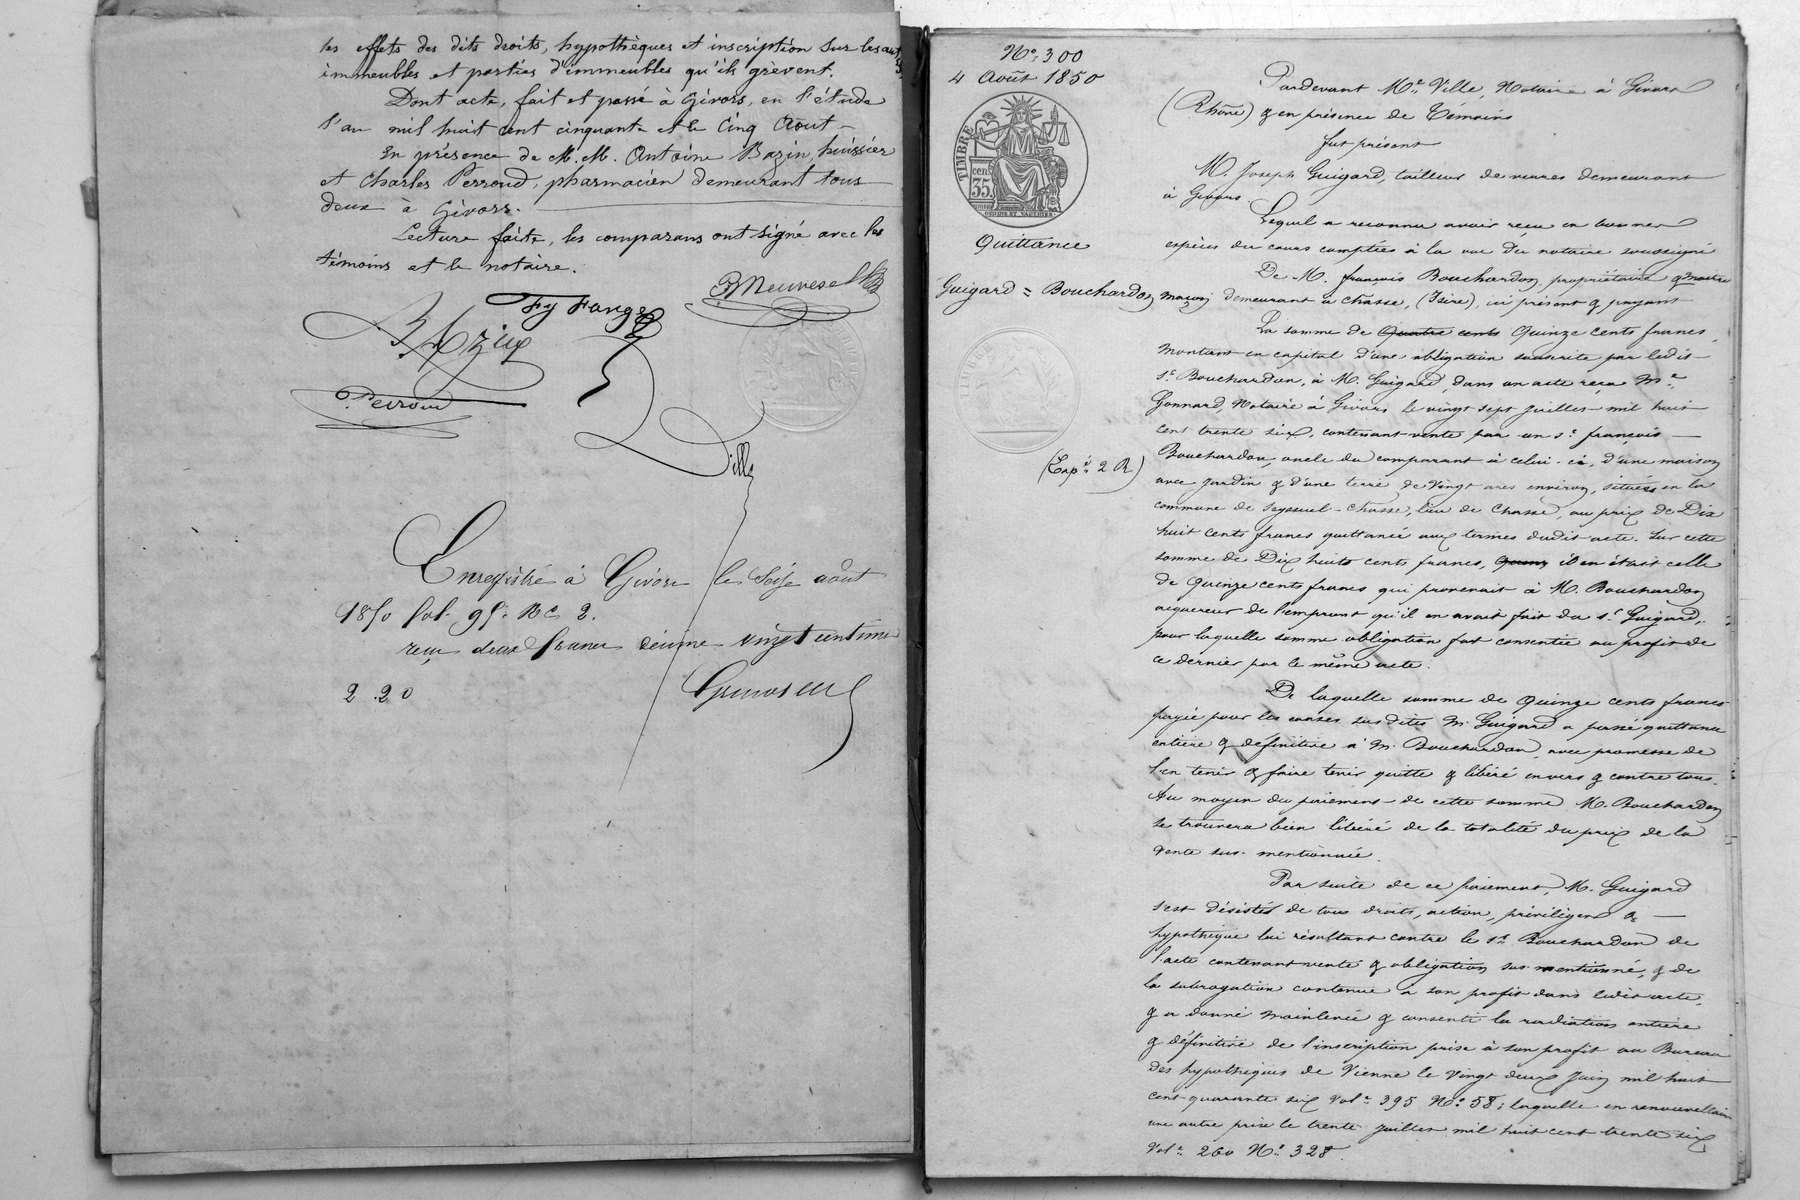 les effets des dits droits, hypothèques et inscription sur les aut
immeubles et parties d'immeubles qu'ils grèvent.
Dont acte, fait et passé à Givors, en l'étude
l'an mil huit cent cinquante et le Cinq Aout
En présence de M.M. Antoine Bazin, huissier
et Charles Perroud, pharmacien demeurant tous
deux à Givors.
Lecture faite, les comparans ont signé avec les
témoins et le notaire.
Meuvesel
Fy Farge
Bazin
Perroud
Ville
Enregistré à Givors le Seize août
1850 fol. 95. Bc 2.
reçu deux francs décime vingt centimes
2.20
No. 300
4 Août 1850
TIMBRE
cen. 35.
Quittance
Guigard = Bouchardon
(Expé. 2 R)
Pardevant Me. Ville, Notaire à Givors
(Rhône) & en présence de Témoins
fut présent
M. Joseph Guigard, tailleur de verres demeurant
à Givors.
Lequel a reconnu avoir reçu en bonnes
espèces du cours comptées à la vue du notaire soussigné
De M. françois Bouchardon, propriétaire & maître
maçon demeurant à Chasse, (Isère), ici présent & payant
La somme de Quatre cents Quinze cents francs,
montant en capital d'une obligation souscrite par ledit
sr. Bouchardon, à M. Guigard, dans un acte reçu Me.
Gonnard, Notaire à Givors le vingt sept juillet mil huit
cent trente six, contenant vente par un sr. françois
Bouchardon, oncle du comparant à celui-ci, d'une maison
avec jardin & d'une terre de vingt ares environ, situées en la
commune de Seyssuel-Chasse, lieu de Chasse, au prix de Dix
huit cents francs quittancé aux termes dudit acte. Sur cette
somme de Dix huit cents francs, Quinz il en était celle
de Quinze cents francs qui provenait à M. Bouchardon
acquéreur de l'emprunt qu'il en avait fait du sr. Guigard,
pour laquelle somme obligation fut consentie au profit de
ce dernier par le même acte.
De laquelle somme de Quinze cents francs
payée pour les causes susdites M. Guigard a passé quittance
entière & définitive à M. Bouchardon, avec promesse de
l'en tenir & faire tenir quitte & libéré envers & contre tous.
Au moyen du paiement de cette somme M. Bouchardon
se trouvera bien libéré de la totalité du prix de la
vente sus-mentionnée.
Par suite de ce paiement, M. Guigard
s'est désisté de tous droits, action, privilèges &
hypothèque lui résultant contre le sr. Bouchardon de
l'acte contenant vente & obligation sus mentionné, & de
la subrogation contenue à son profit dans ledit acte,
& a donné mainlevée & consenti la radiation entière
& définitive de l'inscription prise à son profit au Bureau
des hypothèques de Vienne le vingt deux Juin mil huit
cent quarante six Vole. 395 No. 58; laquelle en renouvellait
une autre prise le trente juillet mil huit cent trente six
Vole. 260 No. 328.